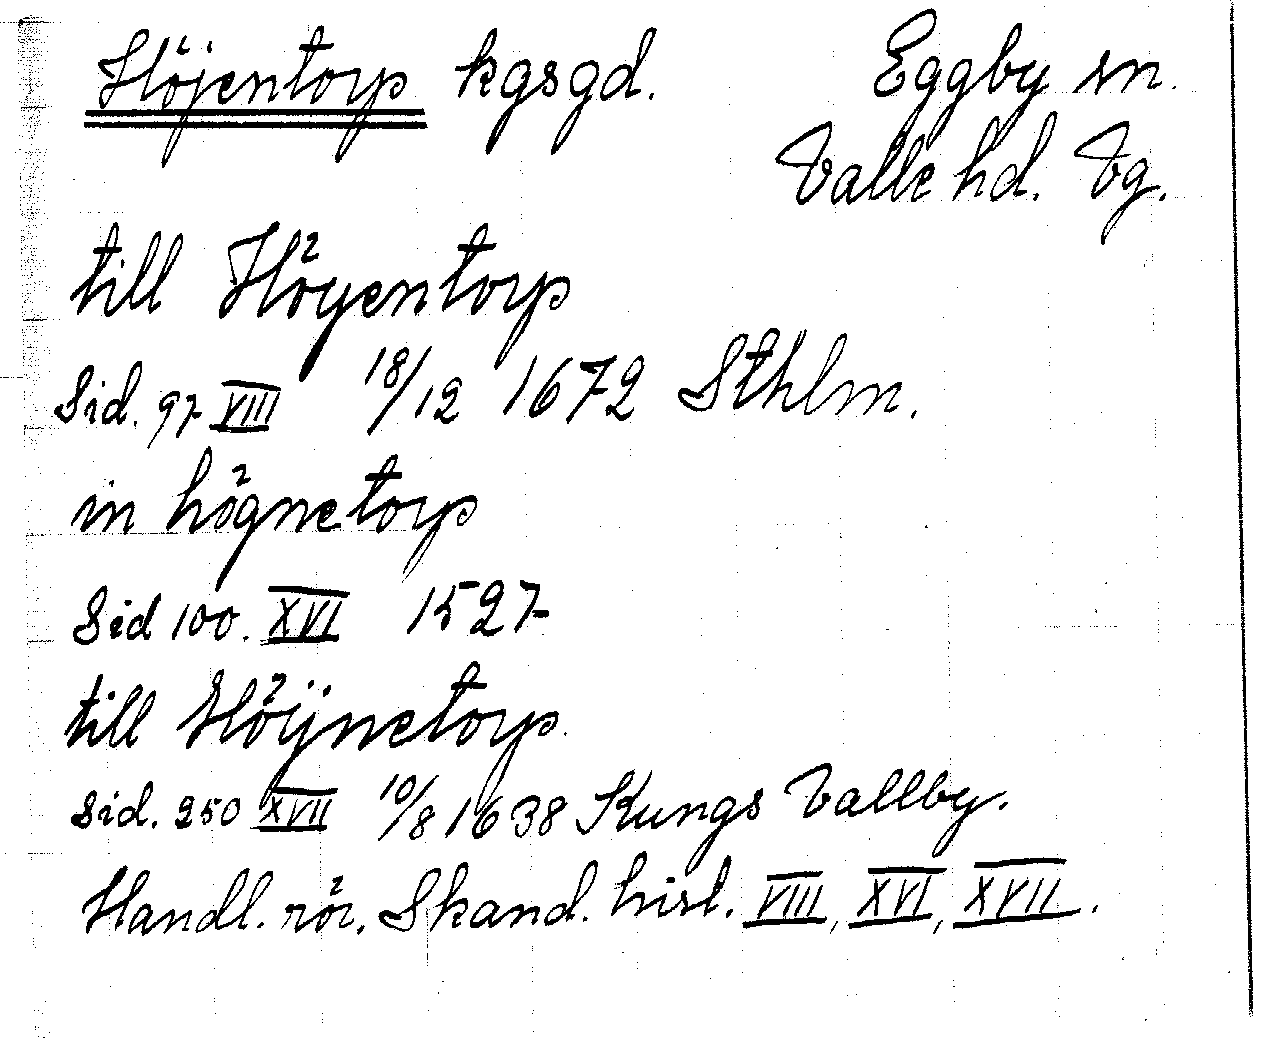 Höjentorp kgsgd. Eggby sn.
Valle hd. Vg.
till Höyentorp
Sid. 97 VIII 18/12 1672 Sthlm.
in högnetorp
Sid 100. XVI 1527
till Höijnetorp
Sid. 250 XVII 10/8 1638 Kungs Vallby.
Handl. rör. Skand. hist. VIII, XVI, XVII.